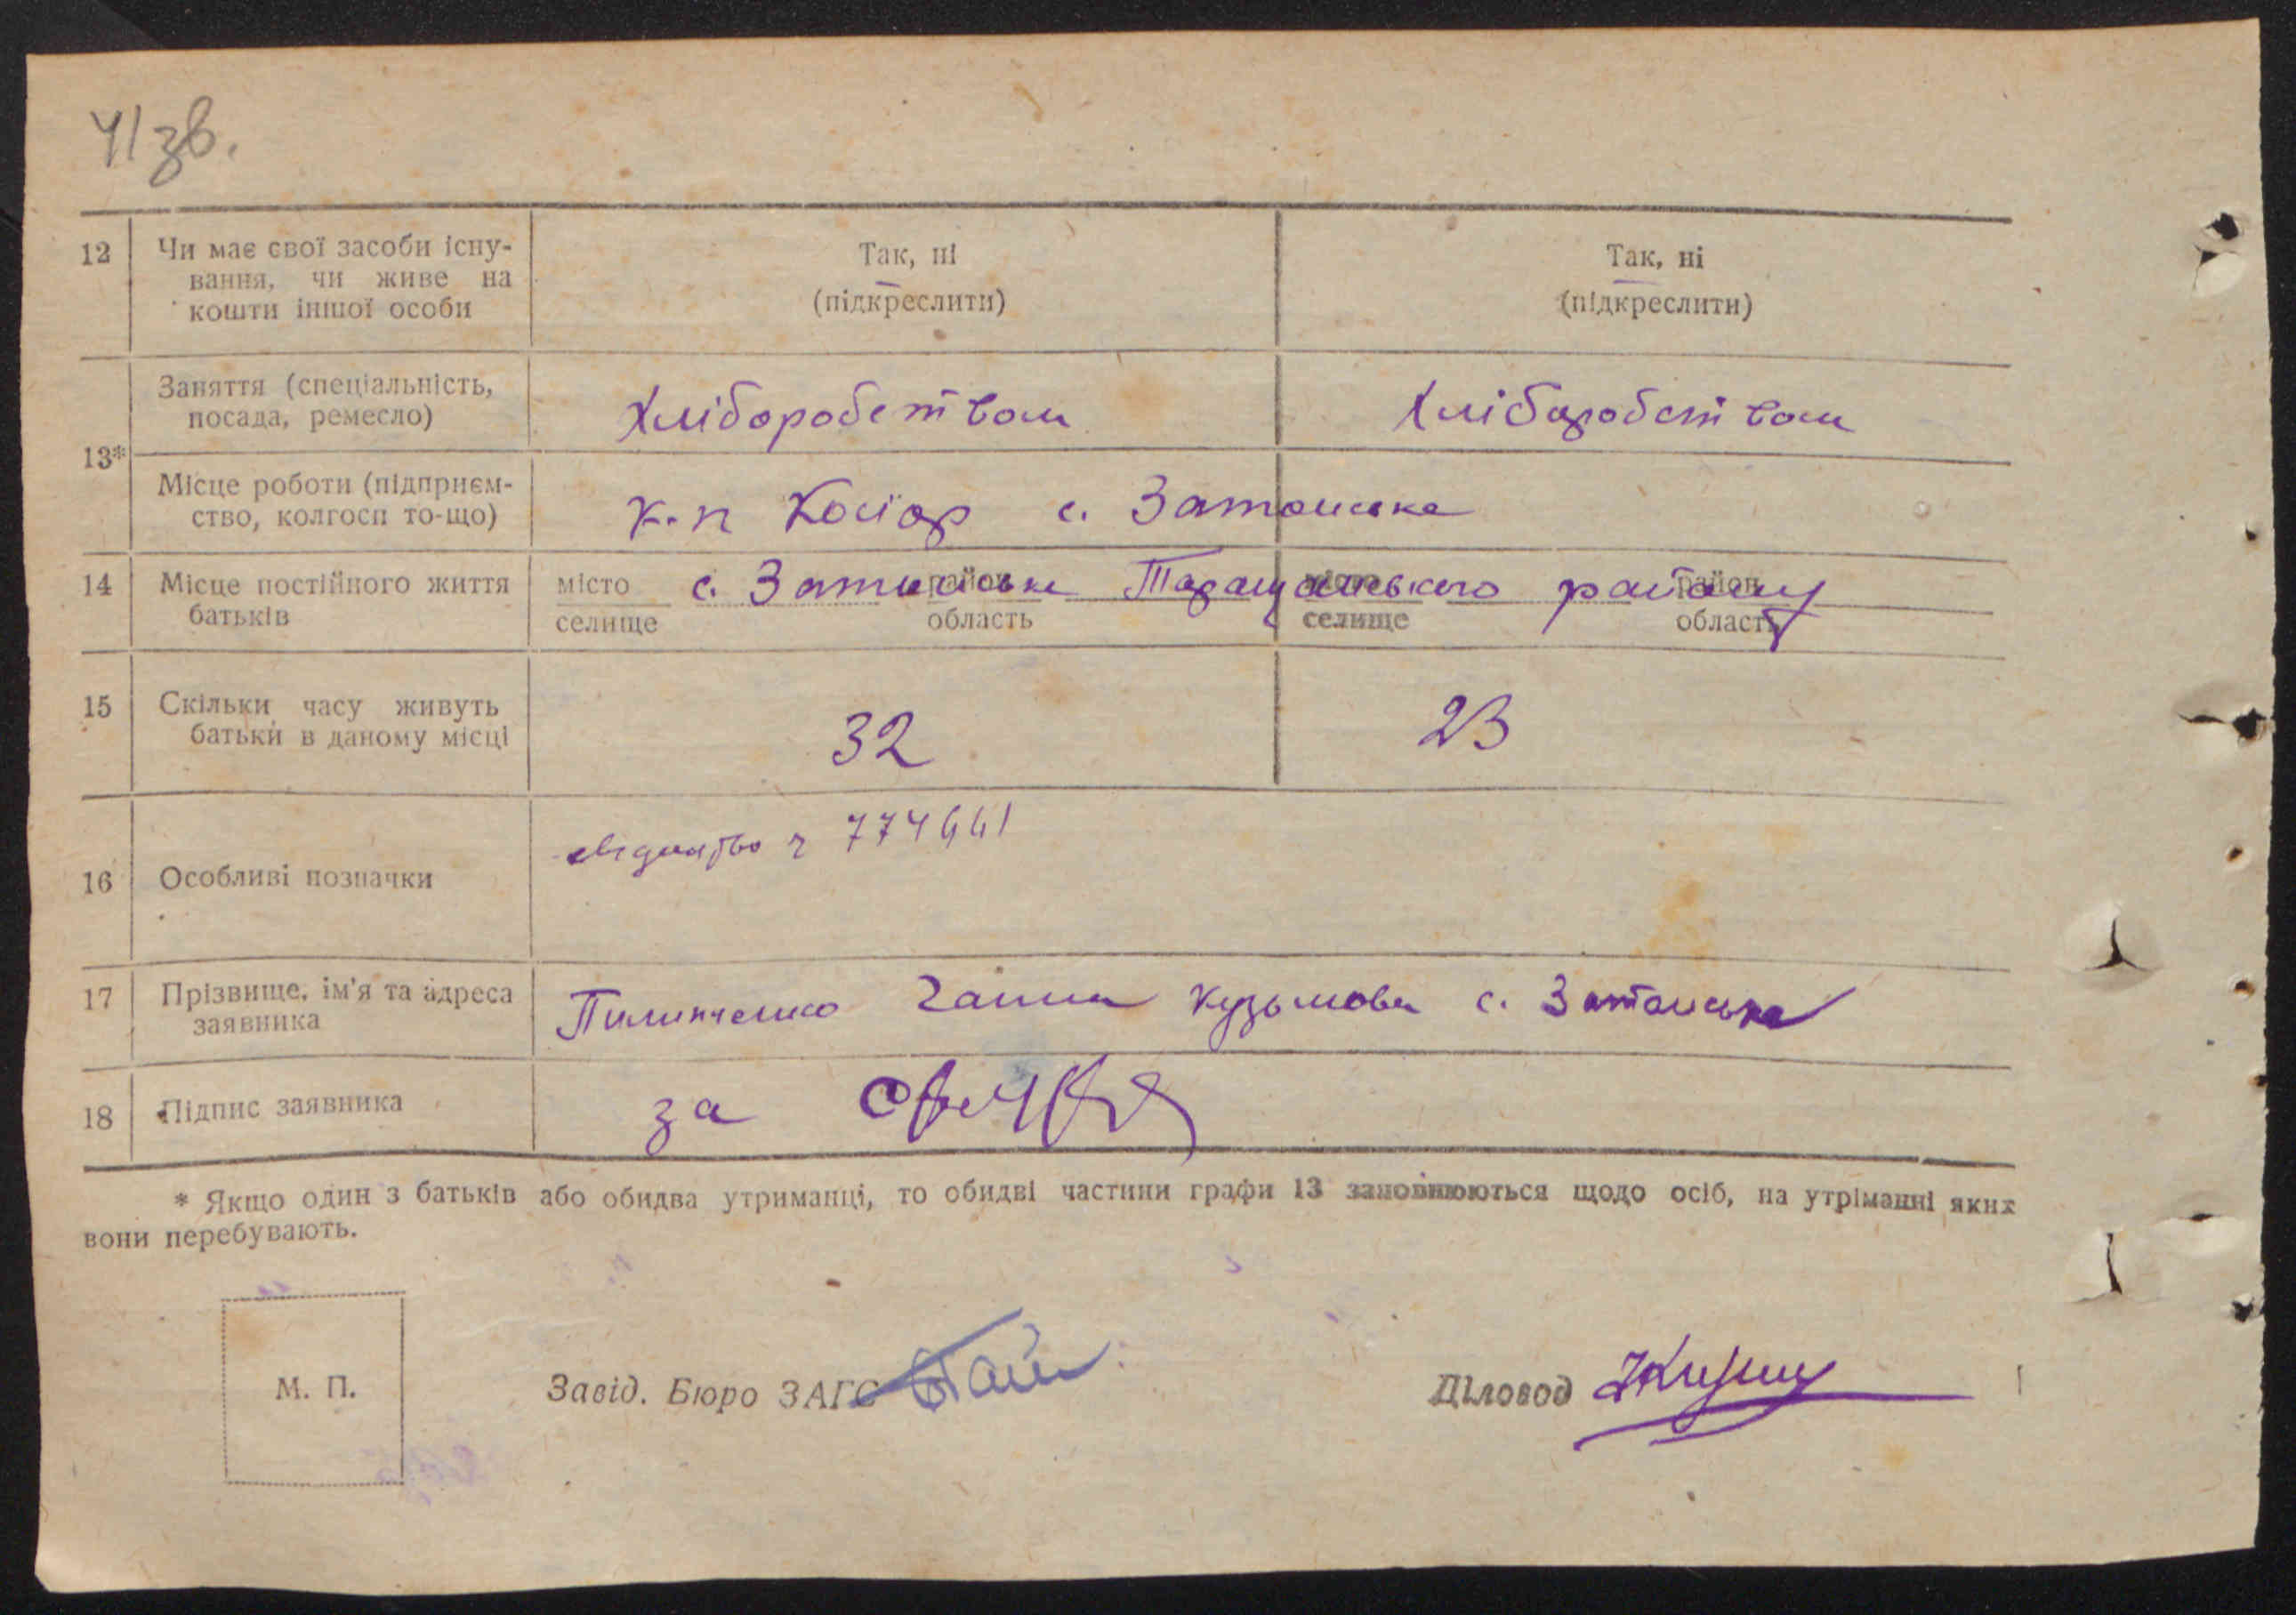 41 зв.
12 Чи має свої засоби існу-
вання, чи живе на
кошти іншої особи
Так, ні
(підкреслити)
Так, ні
(підкреслити)
13*
Заняття (спеціальність,
посада, ремесло)
Хліборобством
Хліборобством
Місце роботи (підприєм-
ство, колгосп то-що)
к-п Косіор с.
14 Місце постійного життя
батьків
місто
селище
район
область
місто
селище
район
область
с. Таращанського району
15 Скільки часу живуть
батьки в даному місці
32
23
16 Особливі позначки
свідоцтво ч 774441
17 Прізвище, ім'я та адреса
заявника
Пилипченко Ганна Кузьмова с.
18 Підпис заявника
за
* Якщо один з батьків або обидва утриманці, то обидві частини графи 13 заповнюються щодо осіб, на утріманні яких
вони перебувають.
М. П.
Завід. Бюро ЗАГС
Діловод